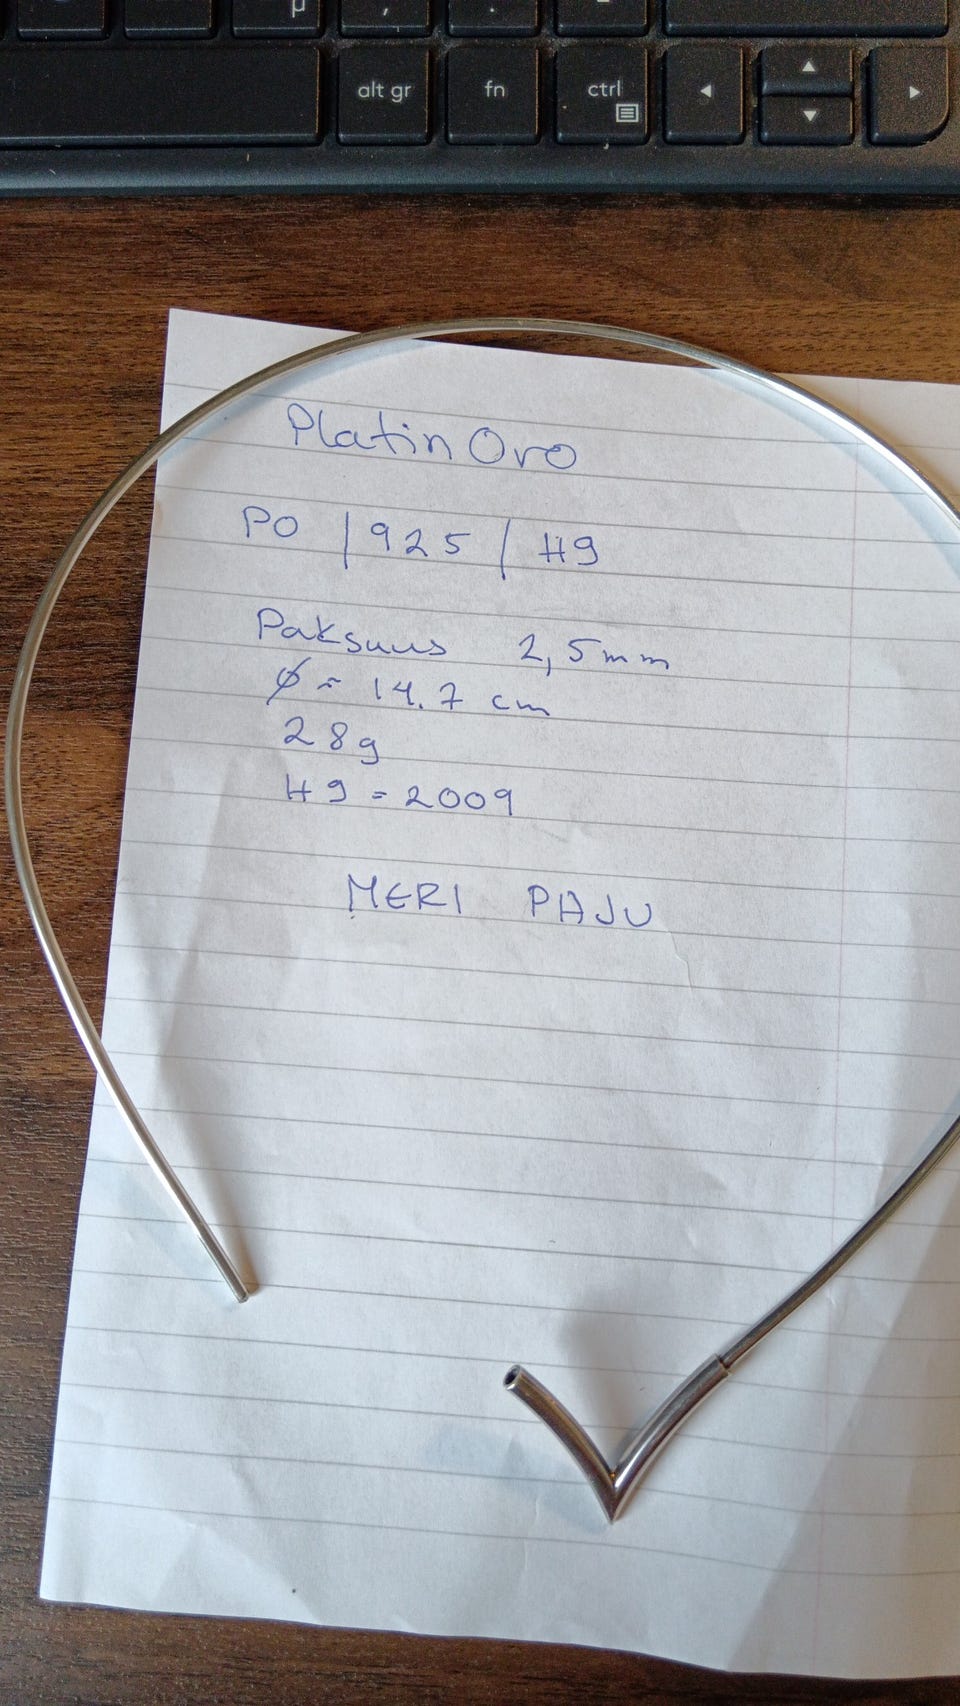 µ ; : _
alt gr fn ctrl
Platin Oro
PO / 925 / H9
Paksuus 2,5mm
Ø ~ 14.7 cm
28g
H9 = 2009
MERI PAJU